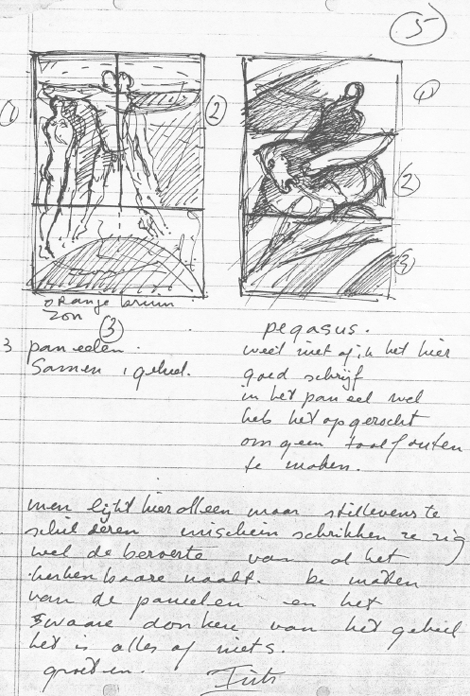 5
1
2
1
2
3
orange bruin
zon
3
3 paneelen.
Samen 1 geheel.
pegasus.
weet niet of ik het hier
goed schrijf
in het paneel wel
heb het opgezocht
om geen taalfouten
te maken.
men lijkt hier alleen maar stillevens te
schilderen mischien schrikken ze zig
wel de beroerte van al het
herkenbaare naakt. de maten
van de paneelen en het
zwaare donker van het geheel
het is alles of niets.
groeten.